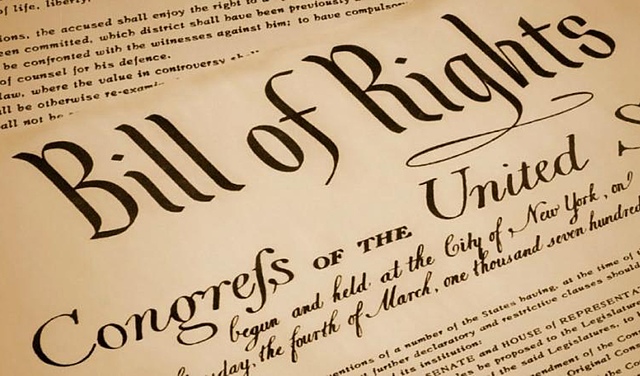 of life, liberty,
ions, the accused shall enjoy the right to a
een committed, which district shall have been previously
be confronted with the witnesses against him; to have compulsor
of counsel for his defence.
law, where the value in controversy
ll be otherwise re-exami
all not be
Bill of Rights
Congreſs OF THE United S
begun and held at the City of New York, on
day, the fourth of March, one thousand seven hundred
entions of a number of the States having, at the time of
further declaratory and restrictive clauses should
its institution:
SENATE and HOUSE of REPRESENTA
be proposed to the Legislatur
the said Legislatures, to
endment of the Con
Original Con